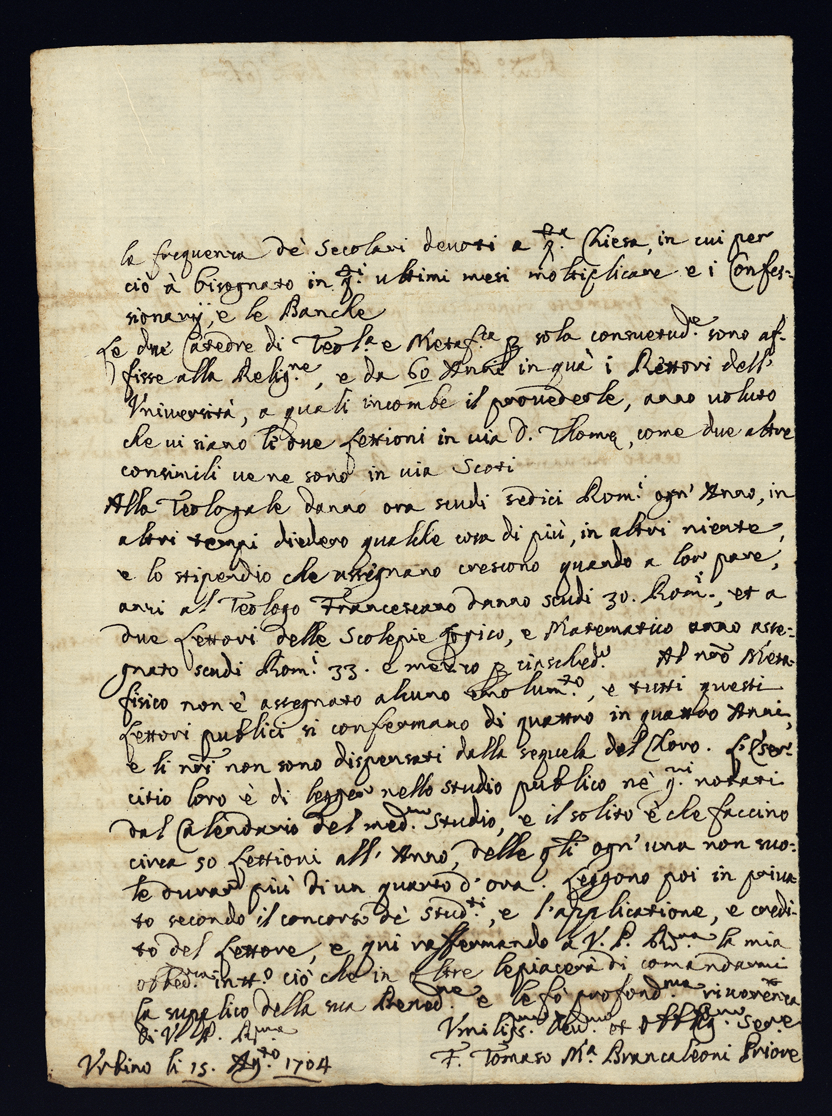 la frequenza de' Secolari devoti a q.ta Chiesa, in cui per
ciò à bisognato in q.ti ultimi mesi moltiplicare e i Confes-
sionarij, e le Banche
Le due Catedre di Teol.a e Metaf.ca p sola consuetud.ne sono af-
fisse alla Relig.ne, e da 60 Anni in quà i Rettori dell'
Vniversità, a quali incombe il provederle, anno voluto
che vi siano li due Lettioni in via D. Thomę, come due altre
consimili ve ne sono in via Scoti
Alla Teologale danno ora scudi sedici Rom.i ogn' Anno, in
altri tempi diedero qualche cosa di più, in altri niente,
e lo stipendio che assegnano crescono quando a lor pare,
anzi al Teologo Francescano danno scudi 30. Rom.i, et a
due Lettori delle Scolepie Logico, e Matematico anno asse-
gnato scudi Rom.i 33. e mezzo p ciasched.o Al nr̃o Meta-
fisico non è assegnato alcuno emolum.to, e tutti questi
Lettori publici si confermano di quattro in quattro Anni,
e li nr̃i non sono dispensati dalla sequela del Choro. L'Eser-
citio loro è di legger nello studio publico ne' g.ni notati
dal Calendario del med.mo Studio, e il solito è che faccino
circa 50 Lettioni all' Anno, delle q.li ogn' una non suo-
le durar più di un quarto d'ora. Leggono poi in priva-
to secondo il concorso de' Stud.ti, e l'applicatione, e credi-
to del Lettore, e qui raffermando a V. P. R.ma la mia
obbed.za in tt.o ciò che in oltre le piacerà di comandarmi
la supplico della sua Bened.ne e le fò profond.ma riverenza
di V. P. R.ma Vmiliss.mo Dev.mo et Obblig.mo Ser.e
Vrbino li 15. Ag.to 1704 F. Tomaso M.a Brancaleoni Priore